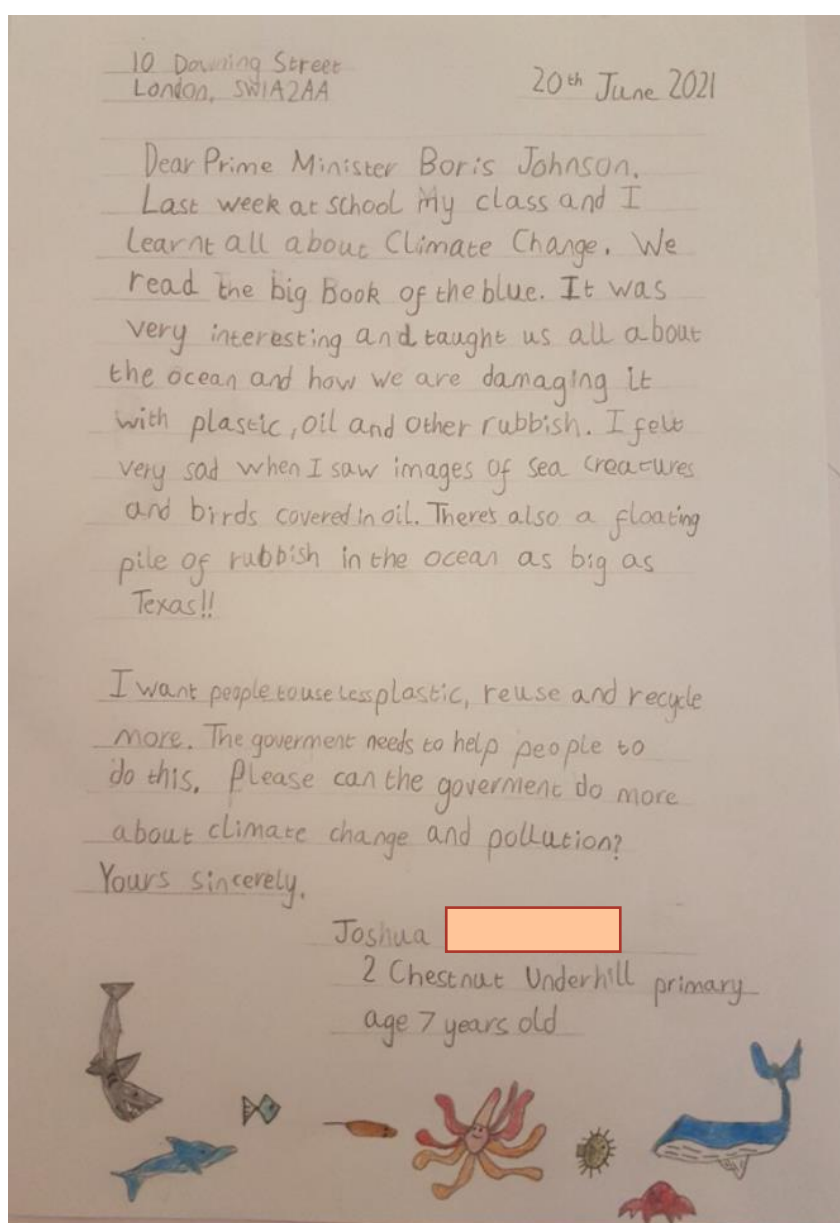 10 Downing Street
London, SW1A2AA
20th June 2021
Dear Prime Minister Boris Johnson.
Last week at school my class and I
learnt all about Climate Change. We
read the big Book of the blue. It was
very interesting and taught us all about
the ocean and how we are damaging it
with plastic, oil and other rubbish. I felt
very sad when I saw images of sea creatures
and birds covered in oil. There's also a floating
pile of rubbish in the ocean as big as
Texas!!
I want people to use less plastic, reuse and recycle
more. The goverment needs to help people to
do this. Please can the goverment do more
about climate change and pollution?
Yours sincerely.
Joshua
2 Chestnut Underhill primary
age 7 years old